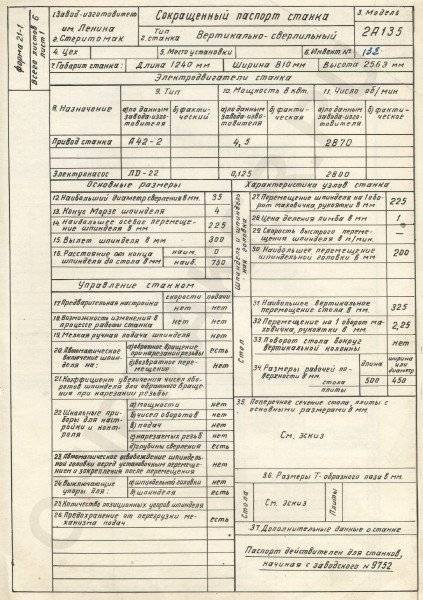 Форма 21-1
Всего листов 6
лист 1
1. Завод-изготовитель
им. Ленина
г. Стерлитамак
Сокращенный паспорт станка
3. Модель
Тип
2. станка Вертикально-сверлильный
2А135
4. Цех
5. Место установки
6. Инвент. №
7. Габарит станка: Длина 1240 мм Ширина 810 мм Высота 2563 мм
Электродвигатели станка
8. Назначение
9. Тип
10. Мощность в квт.
11. Число об/мин
а) по данным завода-изготовителя
б) фактический
а) по данным завода-изготовителя
б) фактическая
а) по данным завода-изготовителя
б) фактическое
Привод станка А42-2 4,5 2870
Электронасос ПД-22 0,125 2800
Основные размеры
12. Наибольший диаметр сверления в мм. 35
13. Конус Морзе шпинделя 4
14. Наибольшее осевое перемещение шпинделя в мм 225
15. Вылет шпинделя в мм 300
16. Расстояние от конца шпинделя до стола в мм
наим. 0
наиб. 750
Управление станком
скорости подачи
17. Предварительная настройка нет нет
18. Возможность изменения в процессе работы станка нет нет
19. Мелкая ручная подача шпинделя нет
20. Автоматическое включение шпинделя на:
а) обратное вращение при нарезании резьбы есть
б) возвратное перемещение нет
21. Коэффициент увеличения чисел оборотов шпинделя для обратного вращения при нарезании резьбы
22. Шкальные приборы для настройки и контроля
а) мощности нет
б) чисел оборотов нет
в) подач нет
г) нарезаемых резьб нет
д) глубины сверления есть
23. Автоматическое освобождение шпиндельной головки перед установочным перемещением и закрепления после перемещения нет
24. Выключающие упоры для:
а) шпиндельной головки нет
б) шпинделя есть
25. Количество позиционных упоров шпинделя
26. Предохранение от перегрузки механизма подач есть
Характеристика узлов станка
Шпиндель и шпиндельная головка
27. Перемещение шпинделя на 1 оборот маховичка рукоятки в мм 225
28. Цена деления лимба в мм 1
29. Скорость быстрого перемещения шпинделя в м/мин. —
30. Наибольшее перемещение шпиндельной головки в мм 200
Стол
31. Наибольшее вертикальное перемещение стола в мм 325
32. Перемещение на 1 оборот маховичка, рукоятки в мм 2,25
33. Поворот стола вокруг вертикальной колонны нет
34. Размеры рабочей поверхности в мм
длина
ширина или диаметр
стола 500 450
плиты
35. Поперечное сечение стола, плиты с основными размерами в мм.
См. эскиз
36. Размеры Т-образного паза в мм.
Стола
См. эскиз
Плиты
37. Дополнительные данные о станке
Паспорт действителен для станков, начиная с заводского № 9752